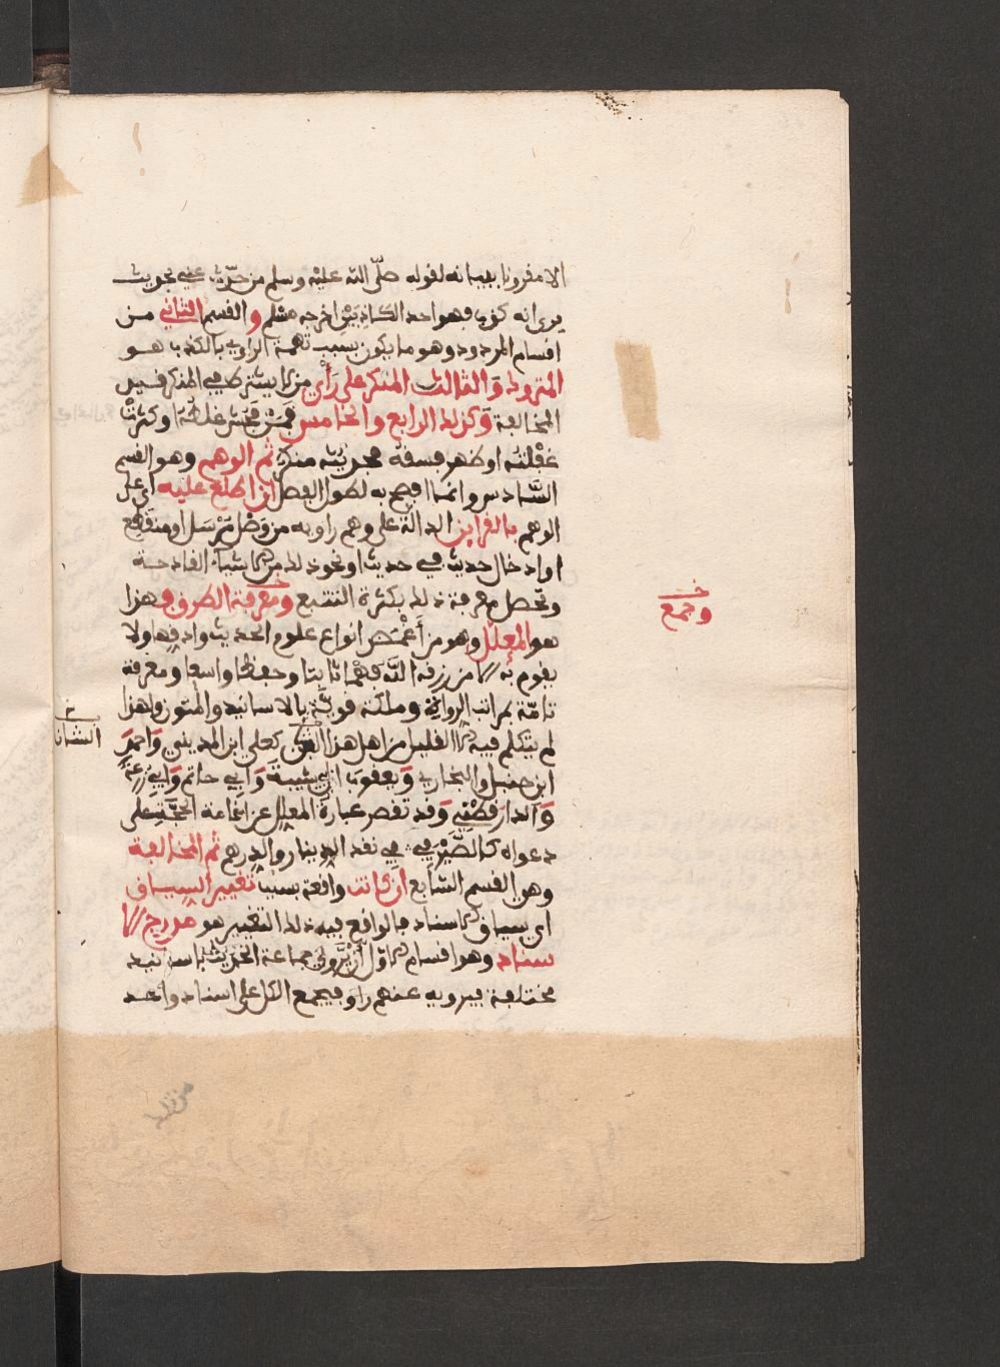 الا مفرونا ببيانه لفوله صلّى الله عليه وسلم من حدّث عني بحديث
يرى انه كذب فهو احد الكاذبَيْن اخرجه مسْلم والفسم الثاني مـن
افسام المردود وهو ما يكون بسبب تهمة الراوي بالكذب هـو
المتروك وَالثالث المنكر على رَأْي من لا يشترط في المنكر فـيد
المخالفة وَكذلك الرابع والخامس فمن فحُش غلطه او كثرتْ
غفْلته او ظهر فسفه فحديثه منكر ثم الوهم وهو الفسم
السَّادس وانما افصح به لطول الفصل ان اطلع عليه اي على
الوهم بالفراين الدالة على وهم راويه من وَصْل مُرْسَل او منفطع
او ادخال حديث في حديث او نحو ذلك من الاشياء الفادحـة
وتحصل معرفة ذلك بكثرة التتبع ومعرفة الطرف فهذا
هو المعلل وهو من أغمض انواع علوم الحديث وادفها ولا
يفوم به الا من رزفه الله فهْما ثافبا وحفظا واسعا ومعرفة
تامّة بمراتب الرواة وملكة فويَّة بالاسانيد والمتون ولهذا
لم يتكلم فيه الا الفليل من اهل هذا كعلي ابن المديني وَاحمدَ
ابن حنبل والبخاري وَيعفوب ابن شيبةَ وَابي حاتم وَابي زرعة
وَالدارفطْني وَفد تفصر عبارة المعلل عن افامة الحجّة على
دعواه كالصَّيْرفي في نفد الدينار والدرهم ثم المخالفة
وهو الفسم السابع ان كانت وافعة بسبب تغيير السيـاف
اي سياف الاسناد فالوافع فيه ذلك التغيير هو مدرج الا
سناد وهو افسام الاوّل أن يَرْوي جماعة الحديث باسانيد
مختلفة فيرويه عنهم راو فيجمع الكل على اسناد واحـد
خـ
وجمع
خ